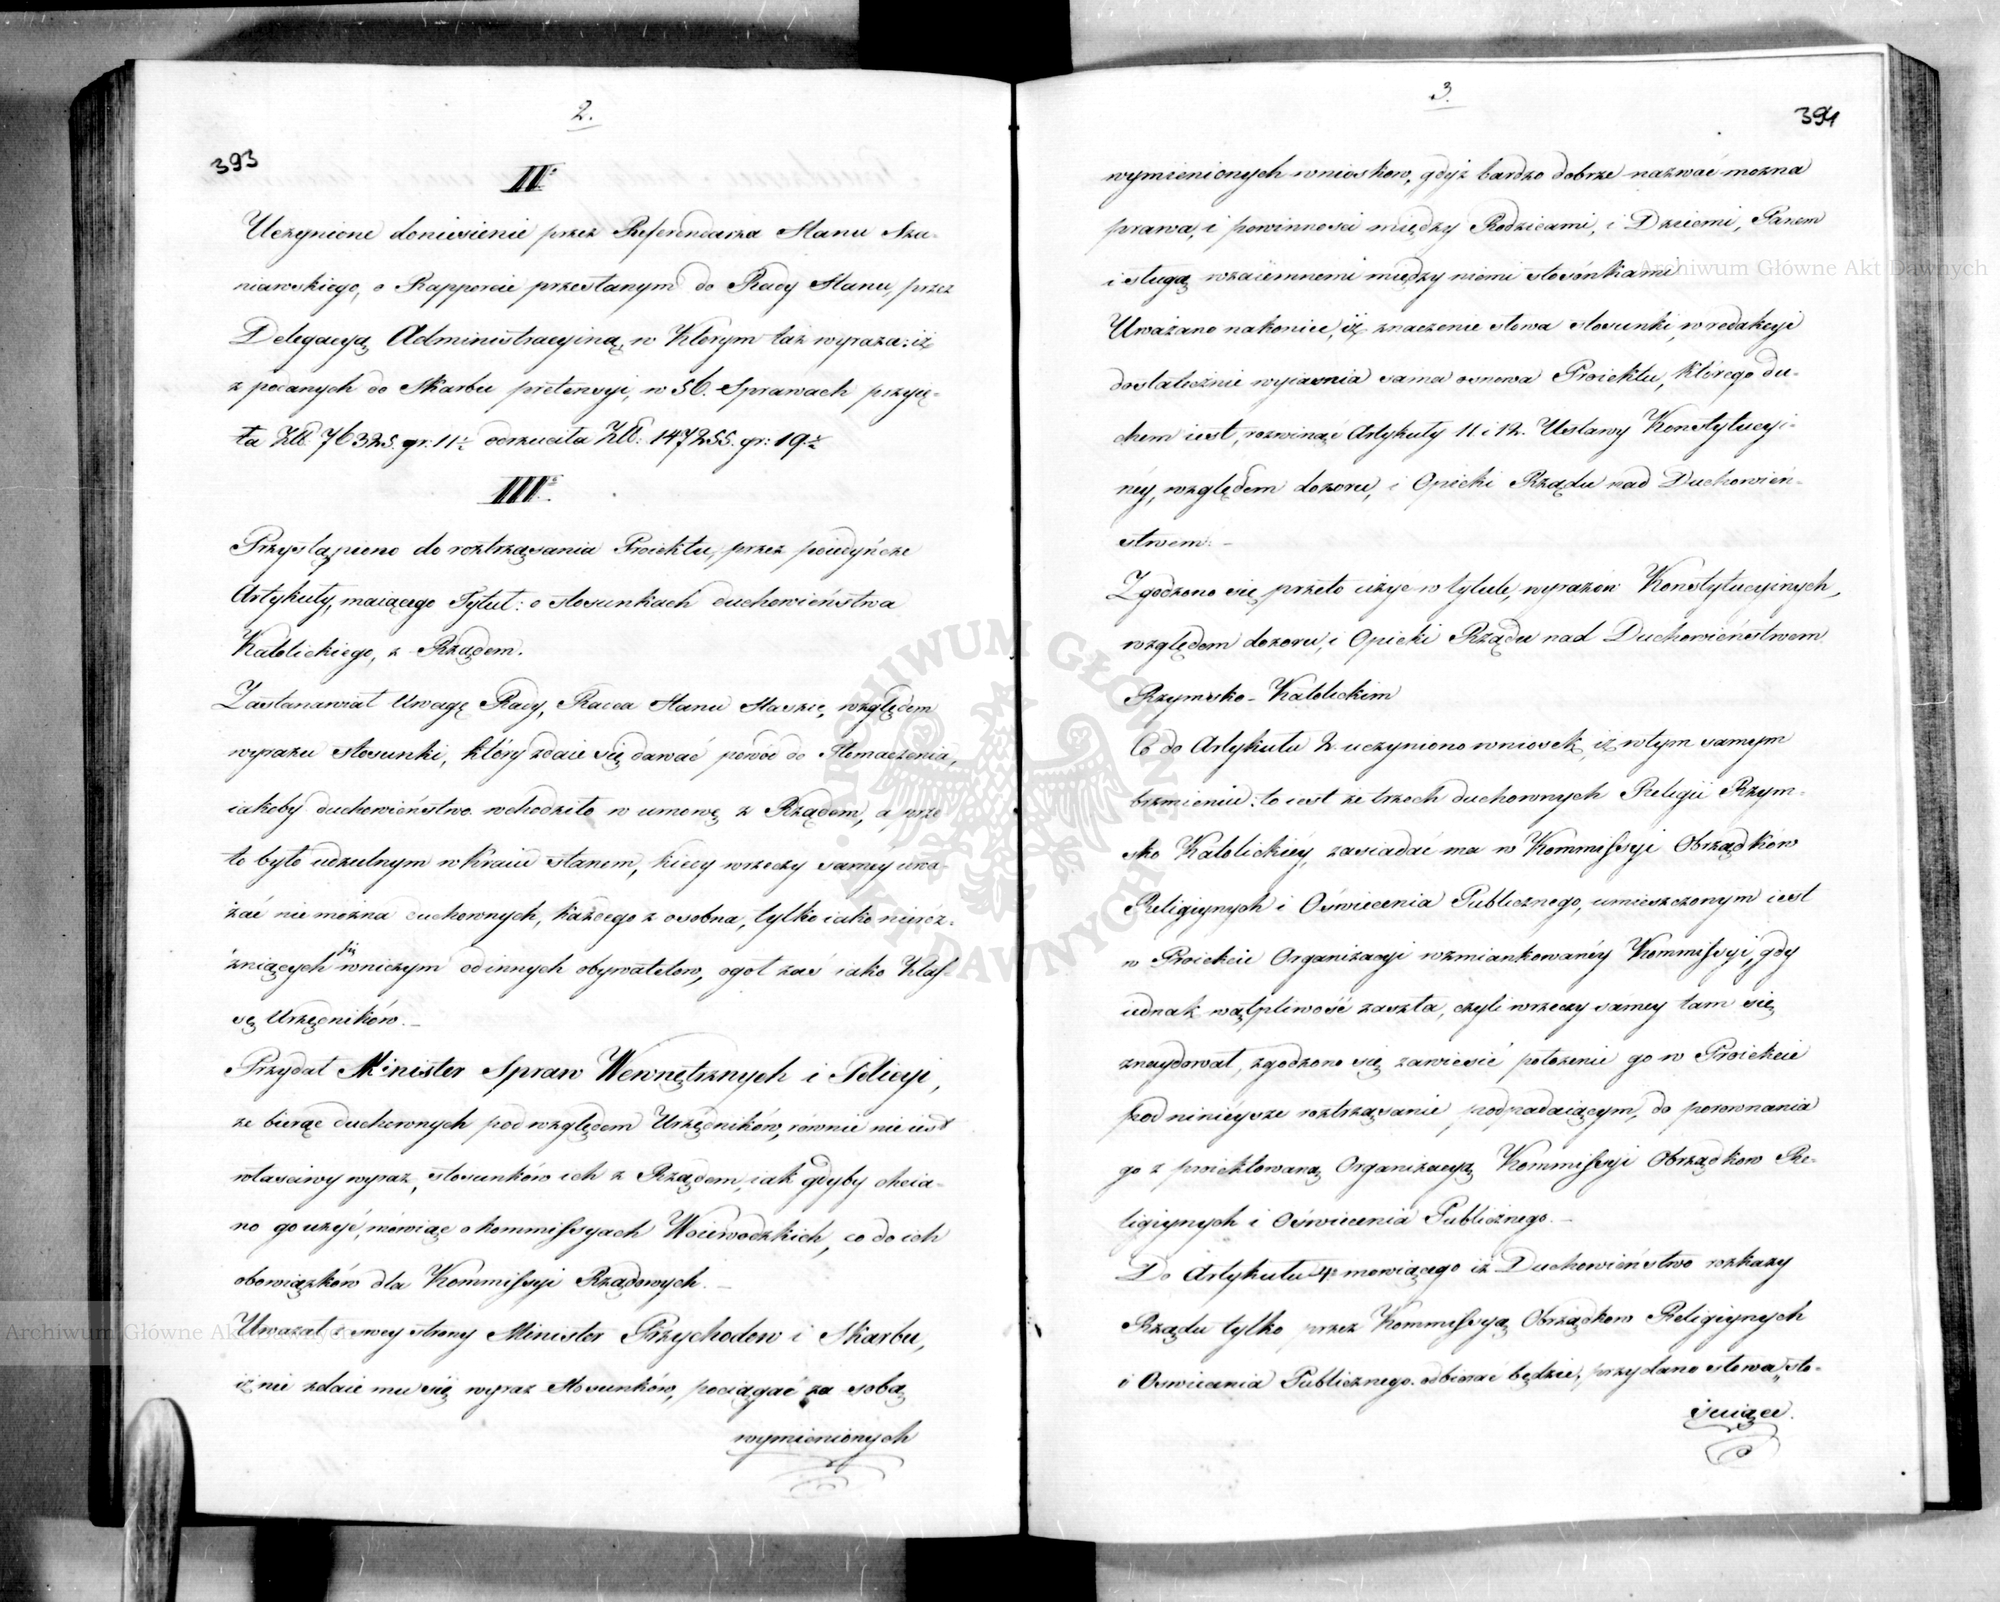 2.
393
II°
Uczynione doniesienie przez Referendarza Stanu Sza-
niawskiego, o Rapporcie przesłanym do Rady Stanu, przez
Delegacyą Administracyiną, w którym taż wyraża: iż
z podanych do Skarbu pretensyi, w 56. Sprawach przyię-
ta Złl. 76325. gr. 11½ odrzuciła Złl: 147255. gr: 19½
III°
Przystąpiono do roztrząsania Proiektu, przez poiedyńcze
Artykuły, maiącego Tytuł: o stosunkach duchowieństwa
Katolickiego, z Rządem.
Zastanawiał Uwagę Rady, Radca Stanu Staszic, względem
wyrazu stosunki, który zdaie się dawać powód do tłomaczenia,
iakoby duchowieństwo wchodziło w umowę z Rządem, a prze
to było udzielnym w Kraiu stanem, kiedy wrzeczy saméy uwa-
żać nie można duchownych, każdego z osobna, tylko iako nieróż-
żniących się wniczym od innych obywatelów, ogół zaś iako Klas-
sę Urzędników. —
Przydał Minister Spraw Wewnętrznych i Policyi,
że biorąc duchownych pod względem Urzędników, równie nie iest
właściwy wyraz, stosunków ich z Rządem, iak gdyby chcia-
no go użyć, mówiąc o kommissyach Woiewodzkich, co do ich
obowiązków dla Kommissyi Rządowych. —
Uważał z swey strony Minister Przychodow i Skarbu,
iż nie zdaie mu się wyraz stosunków, pociągać za sobą
wymienionych
3.
394
wymienionych wniosków, gdyż bardzo dobrze nazwać można
prawa, i powinności między Rodzicami, i Dziećmi, Panem
i sługą wzaiemnemi między niemi stosónkami,
Uważano nakoniec, iż znaczenie słowa stosunki, w redakcyi
dostatecznie wyiawnia sama osnowa Proiektu, którego du-
chem iest, rozwinąć Artykuły 11. i 12. Ustawy Konstytucyi-
néy, względem dozoru, i Opieki Rządu nad Duchowień-
stwem. —
Zgodzono się przeto użyć w tytule, wyrazów Konstytucyinych,
względem dozoru, i Opieki Rządu nad Duchowieństwem
Rzymsko-Katolickim
Co do Artykułu 2. uczyniono wniosek, iż wtym samym
brzmieniu: to iest że trzech duchownych Religii Rzym-
sko Katolickiéy, zasiadać ma w Kommissyi Obrządków
Religiynych i Oświecenia Publicznego, umieszczonym iest
w Proiekcie Organizacyi wzmiankowanéy Kommissyi, gdy
iednak wątpliwość zaszła, czyli wrzeczy samey tam się
znaydował, zgodzono się zawiesić położenie go w Proiekcie
pod ninieysze roztrząsanie podpadaiącym, do porownania
go z proiektowaną Organizacyą Kommissyi Obrządkow Re-
ligiynych i Oświecenia Publicznego. —
Do Artykułu 4° mowiącego iż Duchowieństwo rozkazy
Rządu tylko przez Kommissyą Obrządkow Religiynych
i Oswiecenia Publicznego odbierać będzie, przydano słowa „sto-
suiące.
Archiwum Główne Akt Dawnych
Archiwum Główne Akt Dawnych
ARCHIWUM GŁÓWNE AKT DAWNYCH